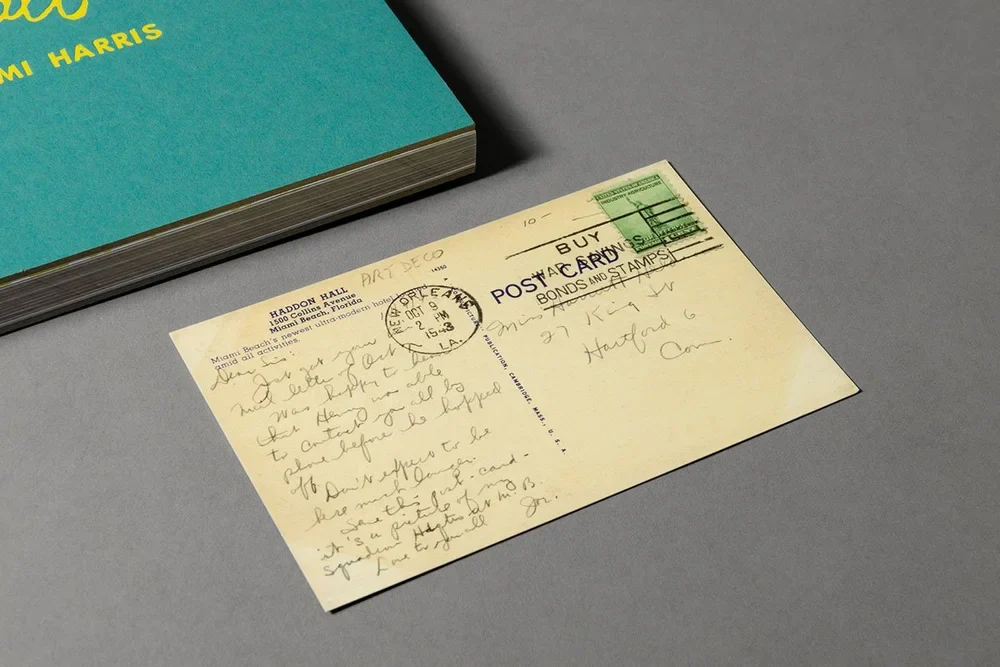 MI HARRIS
10-
ART DECO
14380
HADDON HALL
1500 Collins Avenue
Miami Beach, Florida
Miami Beach's newest ultra-modern hotel
amid all activities.
NEW ORLEANS
OCT 9
2 PM
1943
LA.
BUY
WAR SAVINGS
BONDS AND STAMPS
UNITED STATES OF AMERICA
INDUSTRY AGRICULTURE
POST CARD
PUBLICATION, CAMBRIDGE, MASS., U. S. A.
Dear Sis:
Just got your
mail letter of Oct
Was happy to hear
that Henry was able
to contact you all by
phone before he hopped
off
Don't expect to be
here much longer.
Save this post-card-
it's a picture of my
squadron Hqtrs at M.B.
Love to you all
Joe.
Miss
27 King St
Hartford 6
Conn.